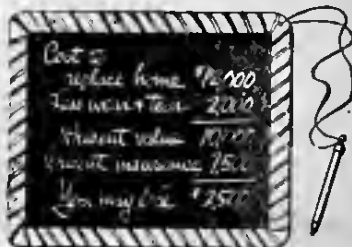 Cost to
replace home $12,000
Less wear & tear 2,000
Present value 10,000
Present insurance 7,500
You may lose $2,500